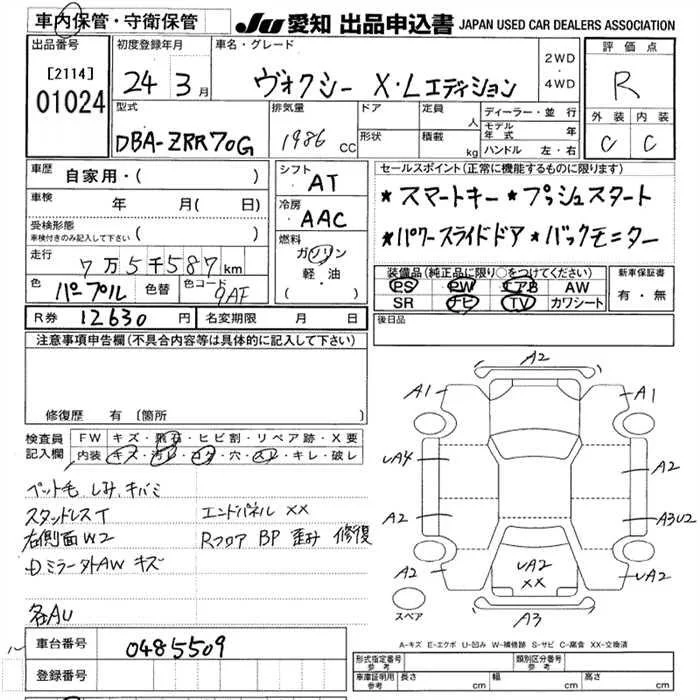 車内保管・守衛保管 JU 愛知 出品申込書 JAPAN USED CAR DEALERS ASSOCIATION
出品番号 [2114] 01024
初度登録年月 24年 3月
車名・グレード ヴォクシー X・Lエディション 2WD・4WD
評価点 R
外装 C 内装 C
型式 DBA-ZRR70G
排気量 1986 CC
ドア 形状
定員 人 積載 kg
ディーラー・並行
モデル年式 年
ハンドル 左・右
車歴 自家用・( )
車検 年 月( 日)
受検形態 車検付きのみ記入して下さい ( )
走行 7万5千587km
色 パープル 色替 色コード 9AF
シフト AT
冷房 AAC
燃料 ガソリン 軽・油
セールスポイント(正常に機能するものに限ります)
★スマートキー ★プッシュスタート
★パワースライドドア ★バックモニター
装備品(純正品に限り○をつけてください)
PS PW エアB AW
SR ナビ TV カワシート
新車保証書 有・無
R券 12630円 名変期限 月 日
後日品
注意事項申告欄(不具合内容等は具体的に記入して下さい)
修復歴 有 〔箇所 〕
検査員記入欄
FW キズ・飛石・ヒビ割・リペア跡・X要
内装 キズ・汚レ・コゲ・穴・スレ・キレ・破レ
ペット毛 しみ、キバミ
スタッドレスT エンドパネル XX
右側面W2 Rフロア BP 歪み 修復
ミラー外AW キズ
各AU
A2
A1 A1
UA4 A2
A2 A3U2
A2 UA2 XX UA2
A3
スペア
A-キズ E-エクボ U-凹み W-補修跡 S-サビ C-腐食 XX-交換済
車台番号 0485509
登録番号
形式指定番号 参考 類別区分番号 参考
車庫証明用 参考 長さ cm 幅 cm 高さ cm